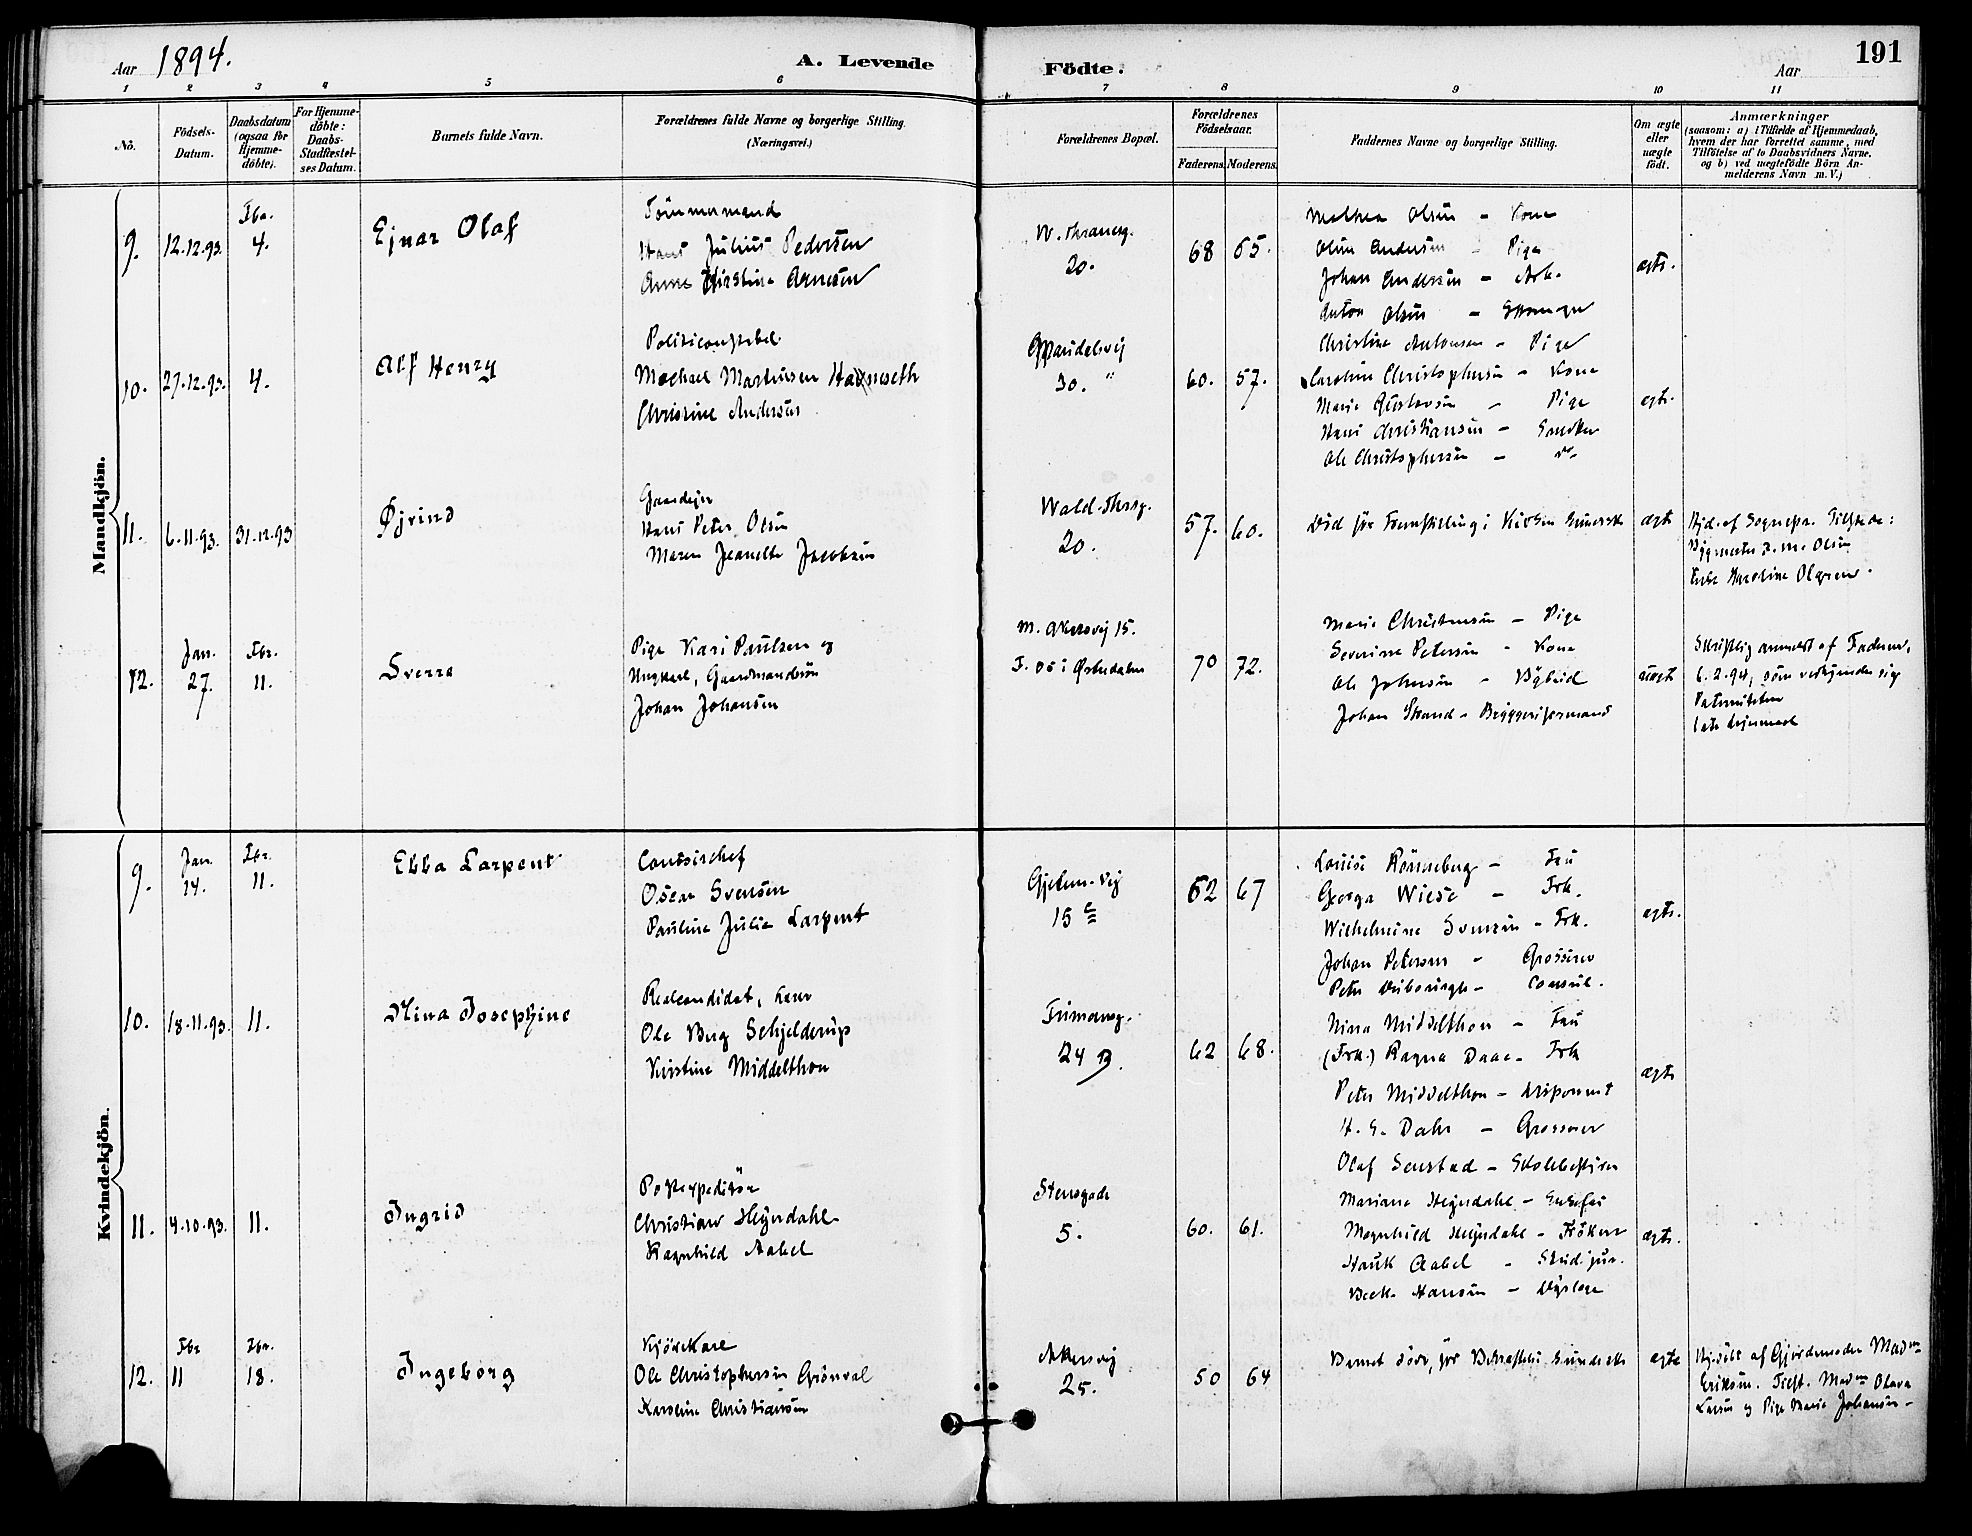 Aar 1894.
A. Levende Födte.
Aar
191
1 2 3 4 5 6 7 8 9 10 11
No.
Födsels-Datum.
Daabsdatum (ogsaa for Hjemme-döbte).
For Hjemme-döbte: Daabs-Stadfæstel-ses Datum.
Barnets fulde Navn.
Forældrenes fulde Navne og borgerlige Stilling. (Næringsvei.)
Forældrenes Bopæl.
Forældrenes Födselsaar.
Faderens. Moderens.
Faddernes Navne og borgerlige Stilling.
Om ægte eller uægte födt.
Anmærkninger
(saasom: a) i Tilfælde af Hjemmedaab,
hvem der har forrettet samme, med
Tilföielse af to Daabsvidners Navne,
og b) ved uægtefödte Börn An-
melderens Navn m. V.)
Mandkjön.
9. 12.12.93. Fbr. 4. Ejnar Olaf
Tömmermand
Hans Julius Pedersen
Anne Kirstine Arnesen
W. Thraneg.
20.
68 65.
Mathea Olsen - Kone
Oline Andersen - Pige
Johan Andersen - Arb.
Anton Olsen -
ægte.
10. 27.12.93. 4. Alf Henry
Politiconstabel
Michael Martinsen
Christine Andersen
30.
60. 57.
Christine Antonsen - Pige
Caroline Christophersen - Kone
Marie Gustavsen - Pige
Hans Christiansen - Snedker
Ole Christophersen - do.
ægte.
11. 6.11.93. 31.12.93 Öjvind
Gaardejer
Hans Peter Olsen
Maren Jeanette Jacobsen
Wald. Thrsg.
20.
57. 60.
Död för Fremstilling i Kirken
ægte
Hjd. af Sognepr.
Bygmester
Olsen
Karoline
12. Jan. 27. Fbr. 11. Sverre
Pige Kari Paulsen og
Ungkarl, Gaardmandssön
Johan Johansen
M. Akersvej 15.
F. Os i Österdalen
70 72.
Marie Christensen - Pige
Severine Petersen - Kone
Ole Johnsen - Bybud
Johan Strand - Bryggeriformand
uægte
Skriftlig anmeldt af Faderen,
6.2.94, som vedkjender sig
Paterniteten
Kvindekjön.
9. Jan. 14. Fbr. 11. Ebba Larpent
Contorchef
Oscar Svensen
Pauline Julie Larpent
Gjetem. Vej
15 c
62 67
Louise Rönneberg - Fru
Georga Wiese - Frk.
Wilhelmine Svensen - Frk.
Johan Petersen - Grosserer
Peter - Consul.
ægte.
10. 18.11.93. 11. Nina Josephine
Realcandidat, Lærer
Ole Berg Schjelderup
Kirstine Middelthon
24 B.
62 68.
Nina Middelthon - Fru
(Frk.) Ragna Daae - Frk
Peter Middelthon - Disponent
H. E. Dahr - Grosserer
Olaf Senstad - Skolebestyrer
ægte
11. 4.10.93. 11. Ingrid
Postexpeditör
Christian Heyerdahl
Ragnhild Aabel
Stensgade
5.
60. 61.
Mariane Heyerdahl - Enkefru
Magnhild Heyerdahl - Fröken
Hauk Aabel - Stud. jur.
Hansen - Dyrlæge
ægte.
12. Fbr 11 Fbr. 18. Ingeborg
Kjörekarl
Ole Christophersen Grönval
Karoline Christiansen
Akersvej
25.
50 64
Barnet döde, för
ægte
Hj.döbt af Gjordemoder Mad.
Eriksen. Tilst. Mad. Olava
Larsen og Pige Marie Johansen